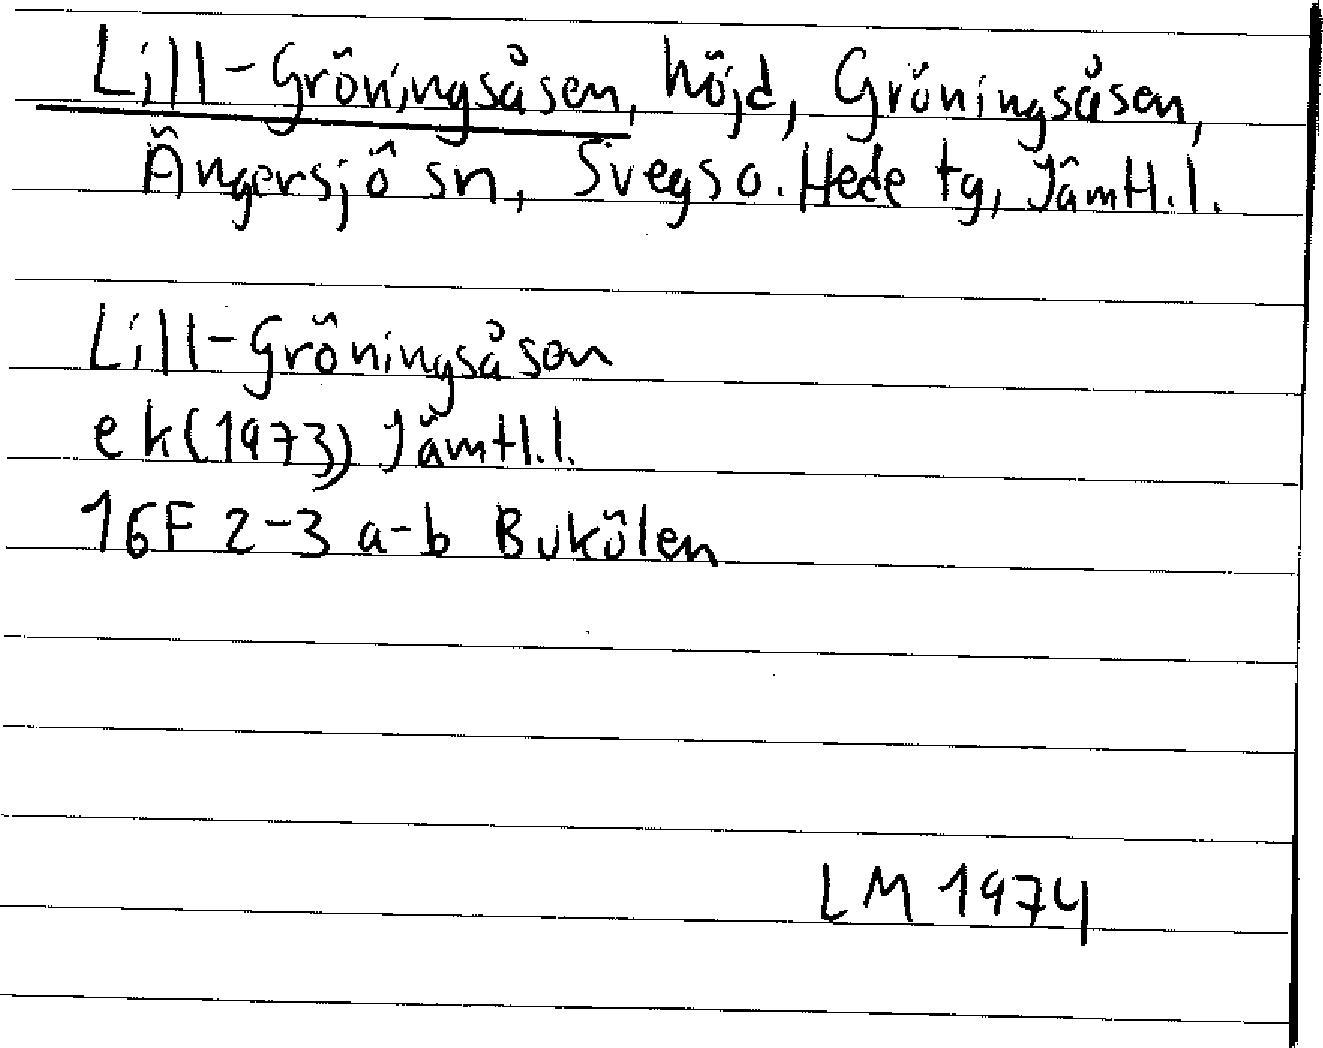 Lill-Gröningsåsen, höjd, Gröningsåsen,
Ängersjö sn, Svegs o. Hede tg, Jämtl.l.
Lill-Gröningsåsen
ek (1973) Jämtl.l.
16F 2-3 a-b Bukölen
LM 1974